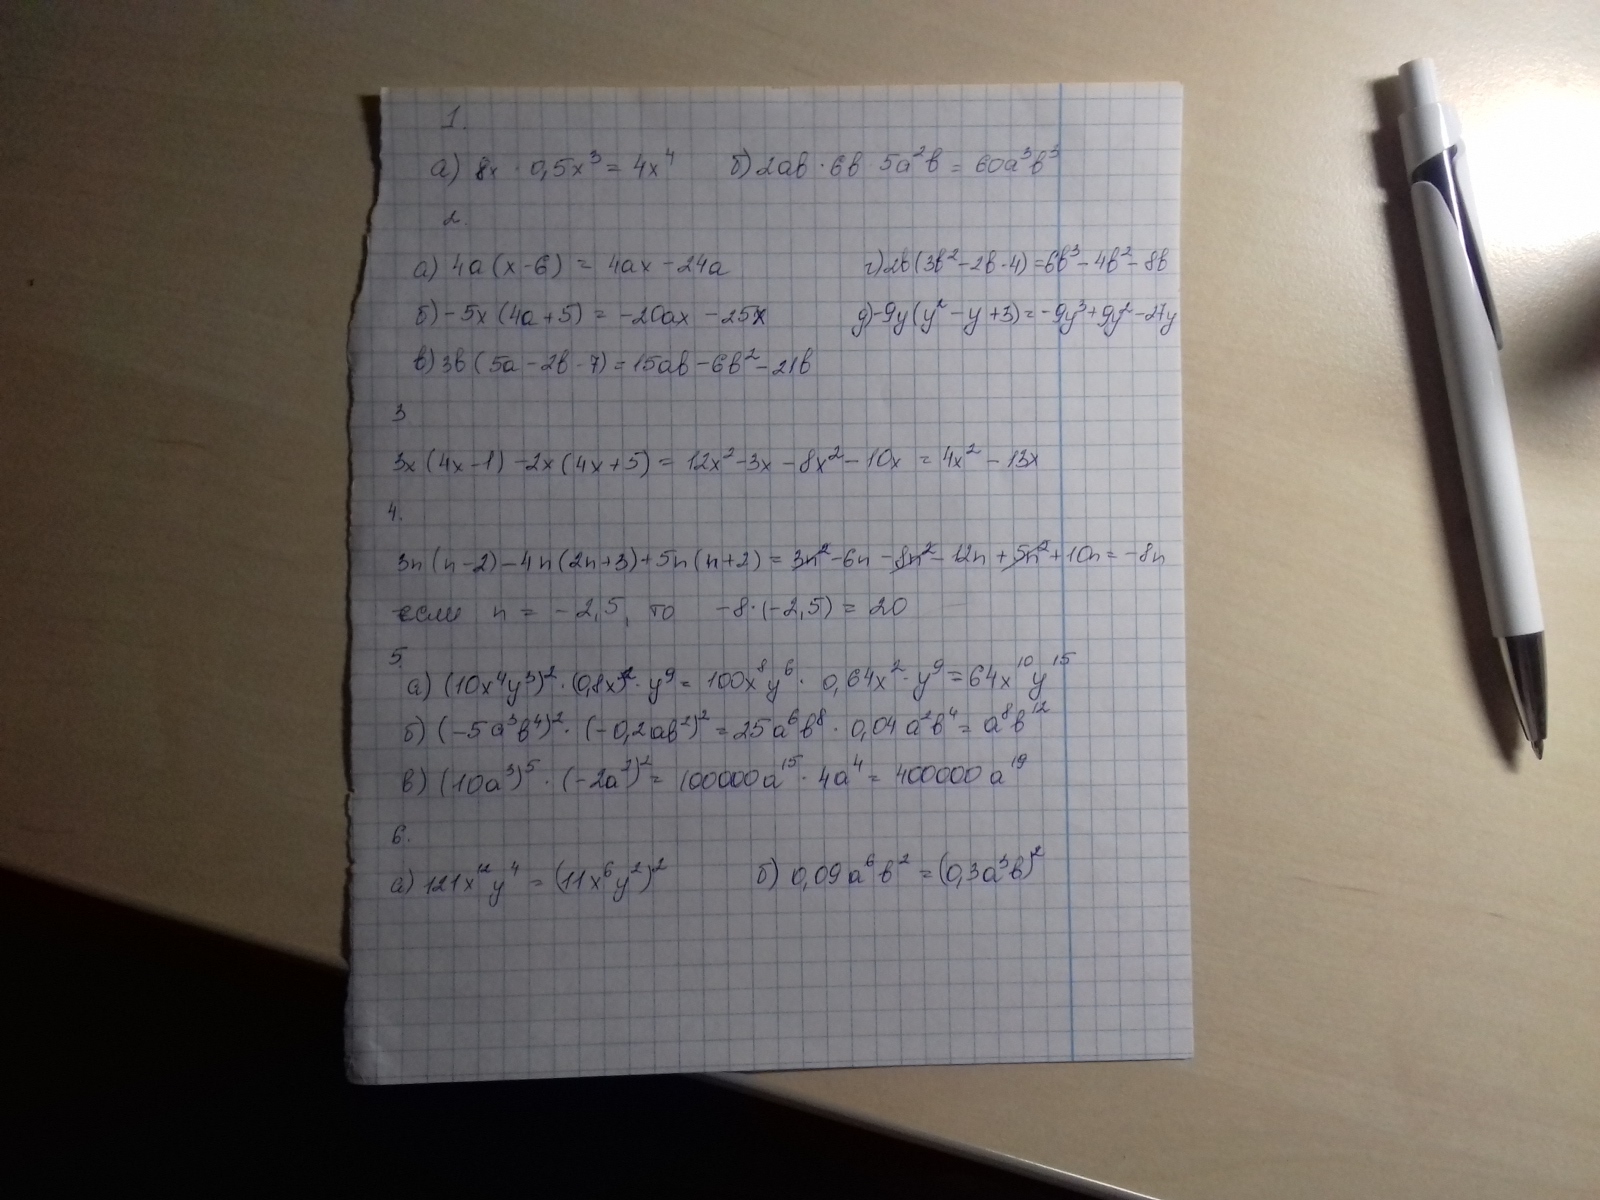 1.
а) 8x · 0,5x³ = 4x⁴ б) 2ab · 6b 5a²b = 60a³b³
2.
а) 4a(x-6) = 4ax - 24a г) 2b(3b²-2b-4) = 6b³-4b²-8b
б) -5x(4a+5) = -20ax - 25x д) -9y(y²-y+3) = -9y³+9y²-27y
в) 3b(5a-2b-7) = 15ab-6b²-21b
3
3x(4x-1)-2x(4x+5) = 12x²-3x-8x²-10x = 4x²-13x
4.
3n(n-2)-4n(2n+3)+5n(n+2) = 3n²-6n-8n²-12n+5n²+10n = -8n
если n = -2,5, то -8·(-2,5) = 20
5.
а) (10x⁴y³)²·(0,8x)²·y⁹ = 100x⁸y⁶· 0,64x²·y⁹ = 64x¹⁰y¹⁵
б) (-5a³b⁴)²·(-0,2ab²)² = 25a⁶b⁸· 0,04a²b⁴ = a⁸b¹²
в) (10a³)⁵·(-2a²)² = 100000a¹⁵·4a⁴ = 400000a¹⁹
6.
а) 121x¹²y⁴ = (11x⁶y²)² б) 0,09a⁶b² = (0,3a³b)²